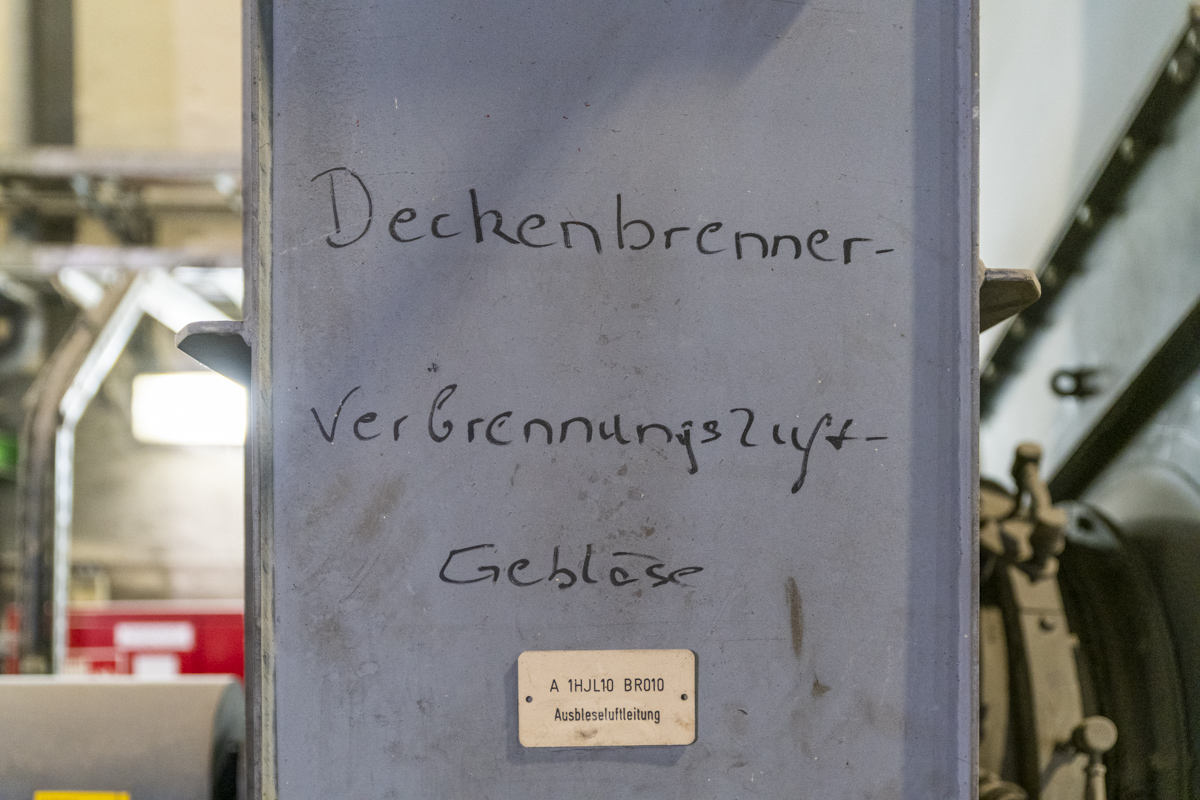 Deckenbrenner-
Verbrennungsluft-
Gebläse
A 1HJL10 BR010
Ausbleseluftleitung